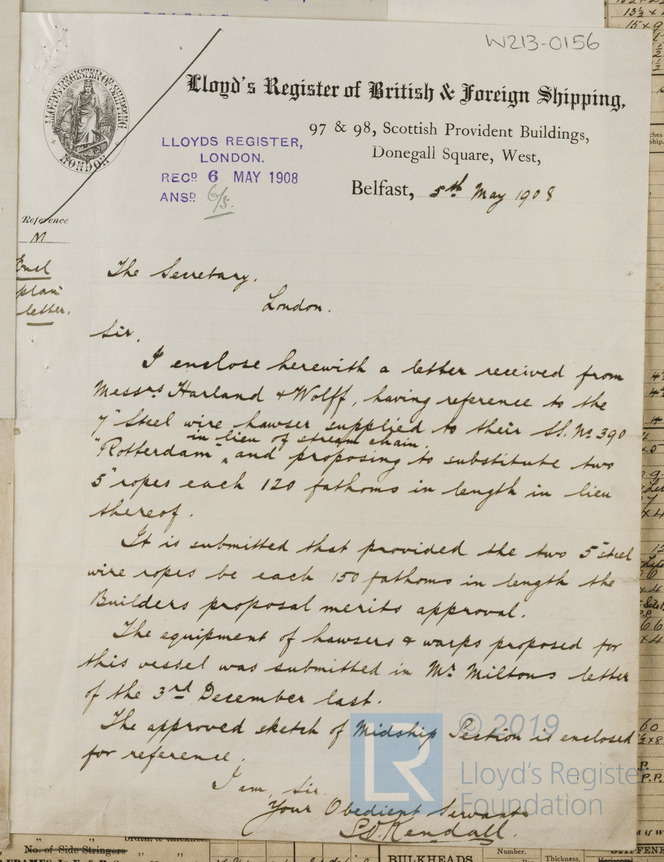 W213-0156
LLOYD'S REGISTER OF SHIPPING
LONDON
Lloyd's Register of British & Foreign Shipping,
97 & 98, Scottish Provident Buildings,
Donegall Square, West,
LLOYDS REGISTER,
LONDON.
RECD 6 MAY 1908
ANSD 6/5.
Belfast, 5th May 1908
Reference
M
Encl
plan
letter.
The Secretary.
London.
Sir,
I enclose herewith a letter received from
Messrs Harland & Wolff, having reference to the
7" Steel wire hawser supplied to their S.S. No 390
in lieu of stream chain
"Rotterdam", and proposing to substitute two
5" ropes each 120 fathoms in length in lieu
thereof.
It is submitted that provided the two 5" steel
wire ropes be each 150 fathoms in length the
Builders proposal merits approval.
The equipment of hawsers & warps proposed for
this vessel was submitted in Mr Milton's letter
of the 3rd December last.
The approved sketch of Midship Section is enclosed
for reference.
I am, Sir
Your Obedient Servant
Kendall.
© 2019
LR
Lloyd's Register
Foundation
No. of Side Stringers
BULKHEADS
Number.
Thickness.